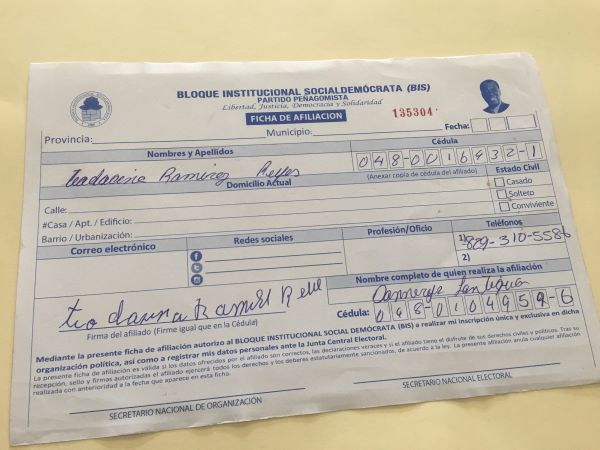 BLOQUE INSTITUCIONAL SOCIALDEMÓCRATA (BIS)
PARTIDO PEÑAGOMISTA
Libertad, Justicia, Democracia y Solidaridad
FICHA DE AFILIACION
135304
Provincia: Municipio: Fecha:
Nombres y Apellidos Cédula
Ramirez Reyes 048-0016432-1
Domicilio Actual (Anexar copia de cédula del afiliado) Estado Civil
Casado
Calle: Soltero
#Casa / Apt. / Edificio: Conviviente
Barrio / Urbanización:
Correo electrónico Redes sociales Profesión/Oficio Teléfonos
1) 829-310-5586
2)
Nombre completo de quien realiza la afiliación
Firma del afiliado (Firme igual que en la Cédula) Cédula: 048-0104959-6
Mediante la presente ficha de afiliación autorizo al BLOQUE INSTITUCIONAL SOCIAL DEMÓCRATA (BIS) a realizar mi inscripción única y exclusiva en dicha
organización política, así como a registrar mis datos personales ante la Junta Central Electoral.
La presente ficha de afiliación es válida si los datos ofrecidos por el afiliado son correctos, las declaraciones veraces y si el afiliado tiene el disfrute de sus derechos civiles y políticos. Tras su
recepción, sello y firmas autorizadas el afiliado ejercerá todos los derechos y los deberes estatutariamente sancionados, de acuerdo a la ley. La presente afiliación anula cualquier afiliación
realizada con anterioridad a la fecha que aparece en esta ficha.
SECRETARIO NACIONAL DE ORGANIZACIÓN SECRETARIO NACIONAL ELECTORAL